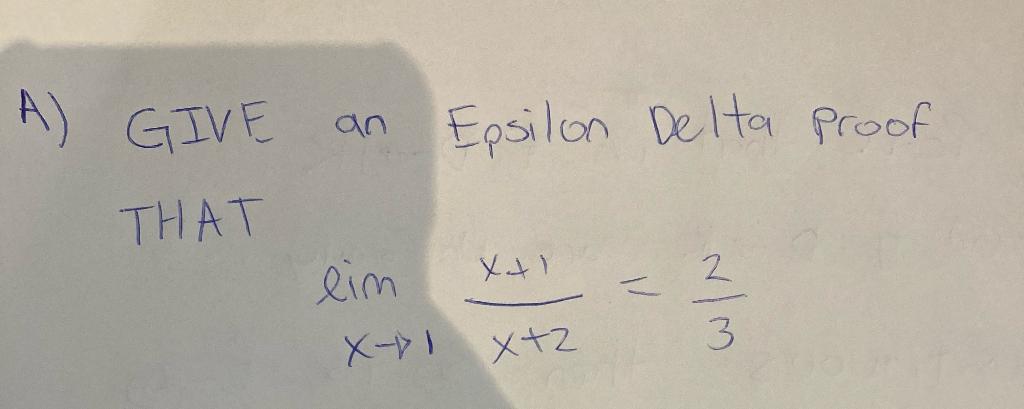 A) GIVE an Epsilon Delta Proof
THAT
lim x+1 = 2
x→1 x+2 3